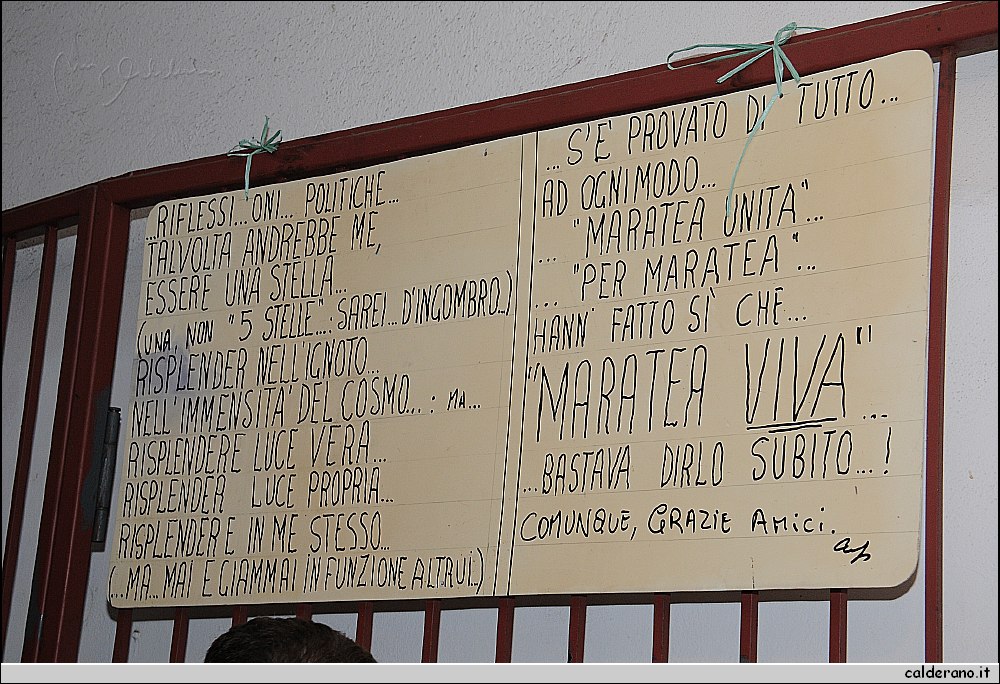 ...RIFLESSI...ONI... POLITICHE...
TALVOLTA ANDREBBE ME,
ESSERE UNA STELLA...
(UNA, NON "5 STELLE"...: SAREI... D'INGOMBRO...)
RISPLENDER NELL'IGNOTO...
NELL'IMMENSITA' DEL COSMO...: MA...
RISPLENDERE LUCE VERA...
RISPLENDER LUCE PROPRIA...
RISPLENDERE IN ME STESSO...
(...MA... MAI E GIAMMAI IN FUNZIONE ALTRUI..)
...S'E' PROVATO DI TUTTO...
AD OGNI MODO...
"MARATEA UNITA"...
... "PER MARATEA"...
HANN' FATTO SÌ CHE...
"MARATEA VIVA"...
...BASTAVA DIRLO SUBITO...!
COMUNQUE, GRAZIE AMICI.
calderano.it